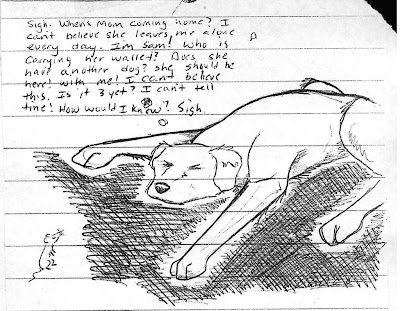 Sigh. Whens Mom coming home? I
can't believe she leaves me alone
every day. I'm Sam! Who is
carrying her wallet? Does she
have another dog? she should be
here! with me! I can't believe
this. Is it 3 yet? I can't tell
time! How would I know? Sigh.